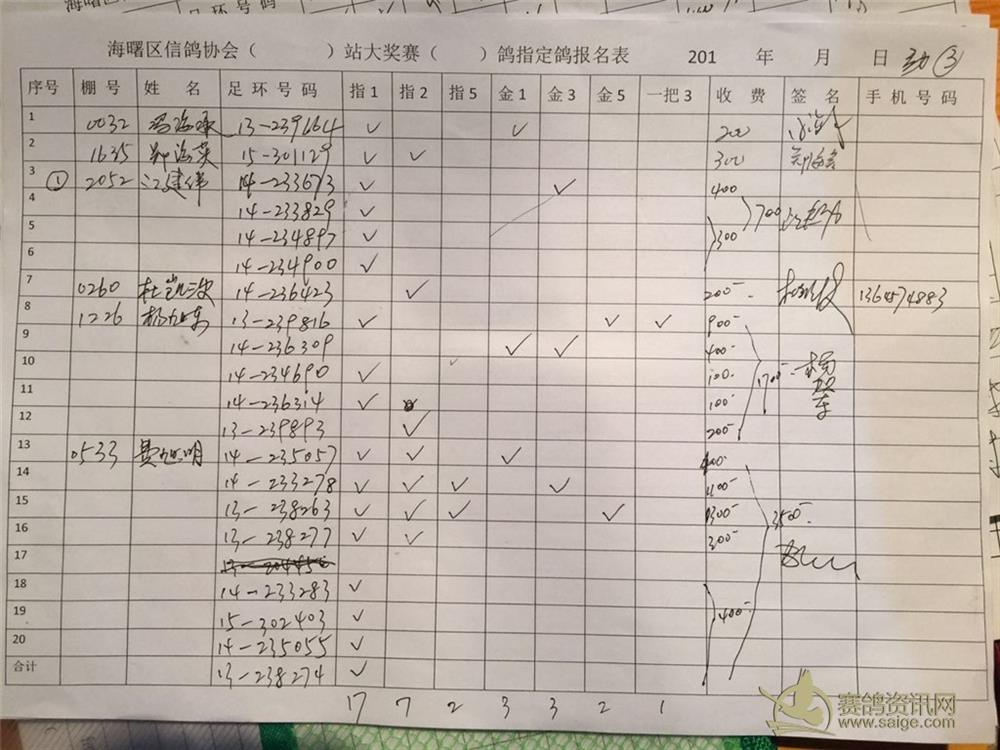 海曙区信鸽协会（ ）站大奖赛（ ）鸽指定鸽报名表 201 年 月 日 ③
序号 棚号 姓 名 足环号码 指1 指2 指5 金1 金3 金5 一把3 收 费 签 名 手机号码
1 0032 13-239664 ✓ ✓ 200
2 1635 郑海英 15-301129 ✓ ✓ 300
3 ① 2052 江建伟 14-233673 ✓ ✓ 400
4 14-233829 ✓ 700
5 14-234897 ✓ 300
6 14-234900 ✓
7 0260 14-236423 ✓ 200- 1364574883
8 1226 13-239816 ✓ ✓ ✓ 900-
9 14-236309 ✓ ✓ 400-
10 14-234690 ✓ 100- 1700-
11 14-236314 ✓ 100-
12 13-239893 ✓ 200-
13 0533 14-235057 ✓ ✓ ✓
14 14-233278 ✓ ✓ ✓ ✓
15 13-238263 ✓ ✓ ✓ ✓ 3500-
16 13-238277 ✓ ✓ 300-
17
18 14-233283 ✓
19 15-302403 ✓ 400-
20 14-235055 ✓
合计 13-238274 ✓
17 7 2 3 3 2 1
赛鸽资讯网
www.saige.com